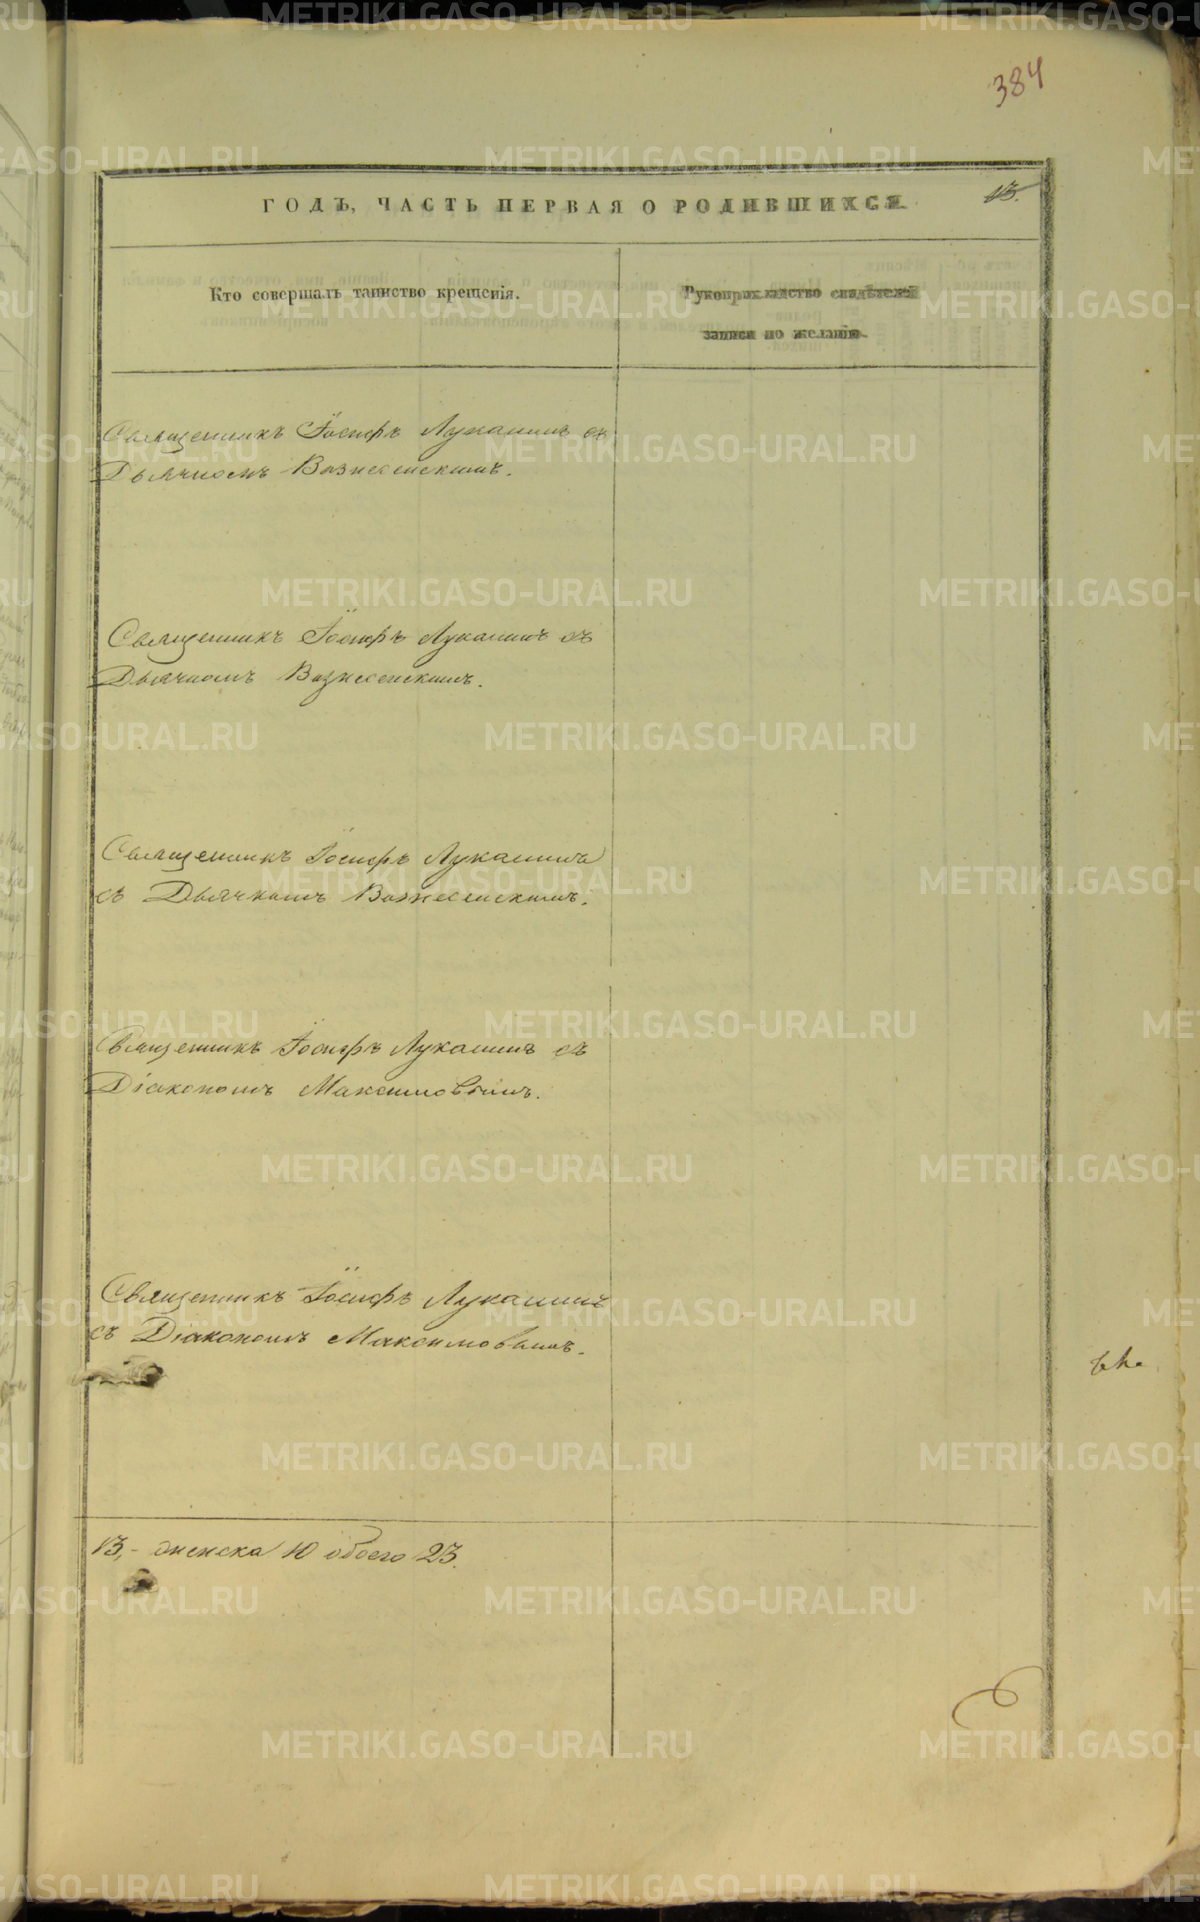 384
ГОДЪ, ЧАСТЬ ПЕРВАЯ О РОДИВШИХСЯ.
13.
Кто совершалъ таинство крещенія.
Рукоприкладство свидѣтелей
записи по желанію.
Священникъ Іосифъ Лукашинъ съ
Дьячкомъ Вознесенскимъ.
Священникъ Іосифъ Лукашинъ съ
Дьячкомъ Вознесенскимъ.
Священникъ Іосифъ Лукашинъ
съ Дьячкомъ Вознесенскимъ.
Священникъ Іосифъ Лукашинъ съ
Діакономъ Максимовымъ.
Священникъ Іосифъ Лукашинъ
съ Діакономъ Максимовымъ.
13,- женска 10 обоего 23.
METRIKI.GASO-URAL.RU